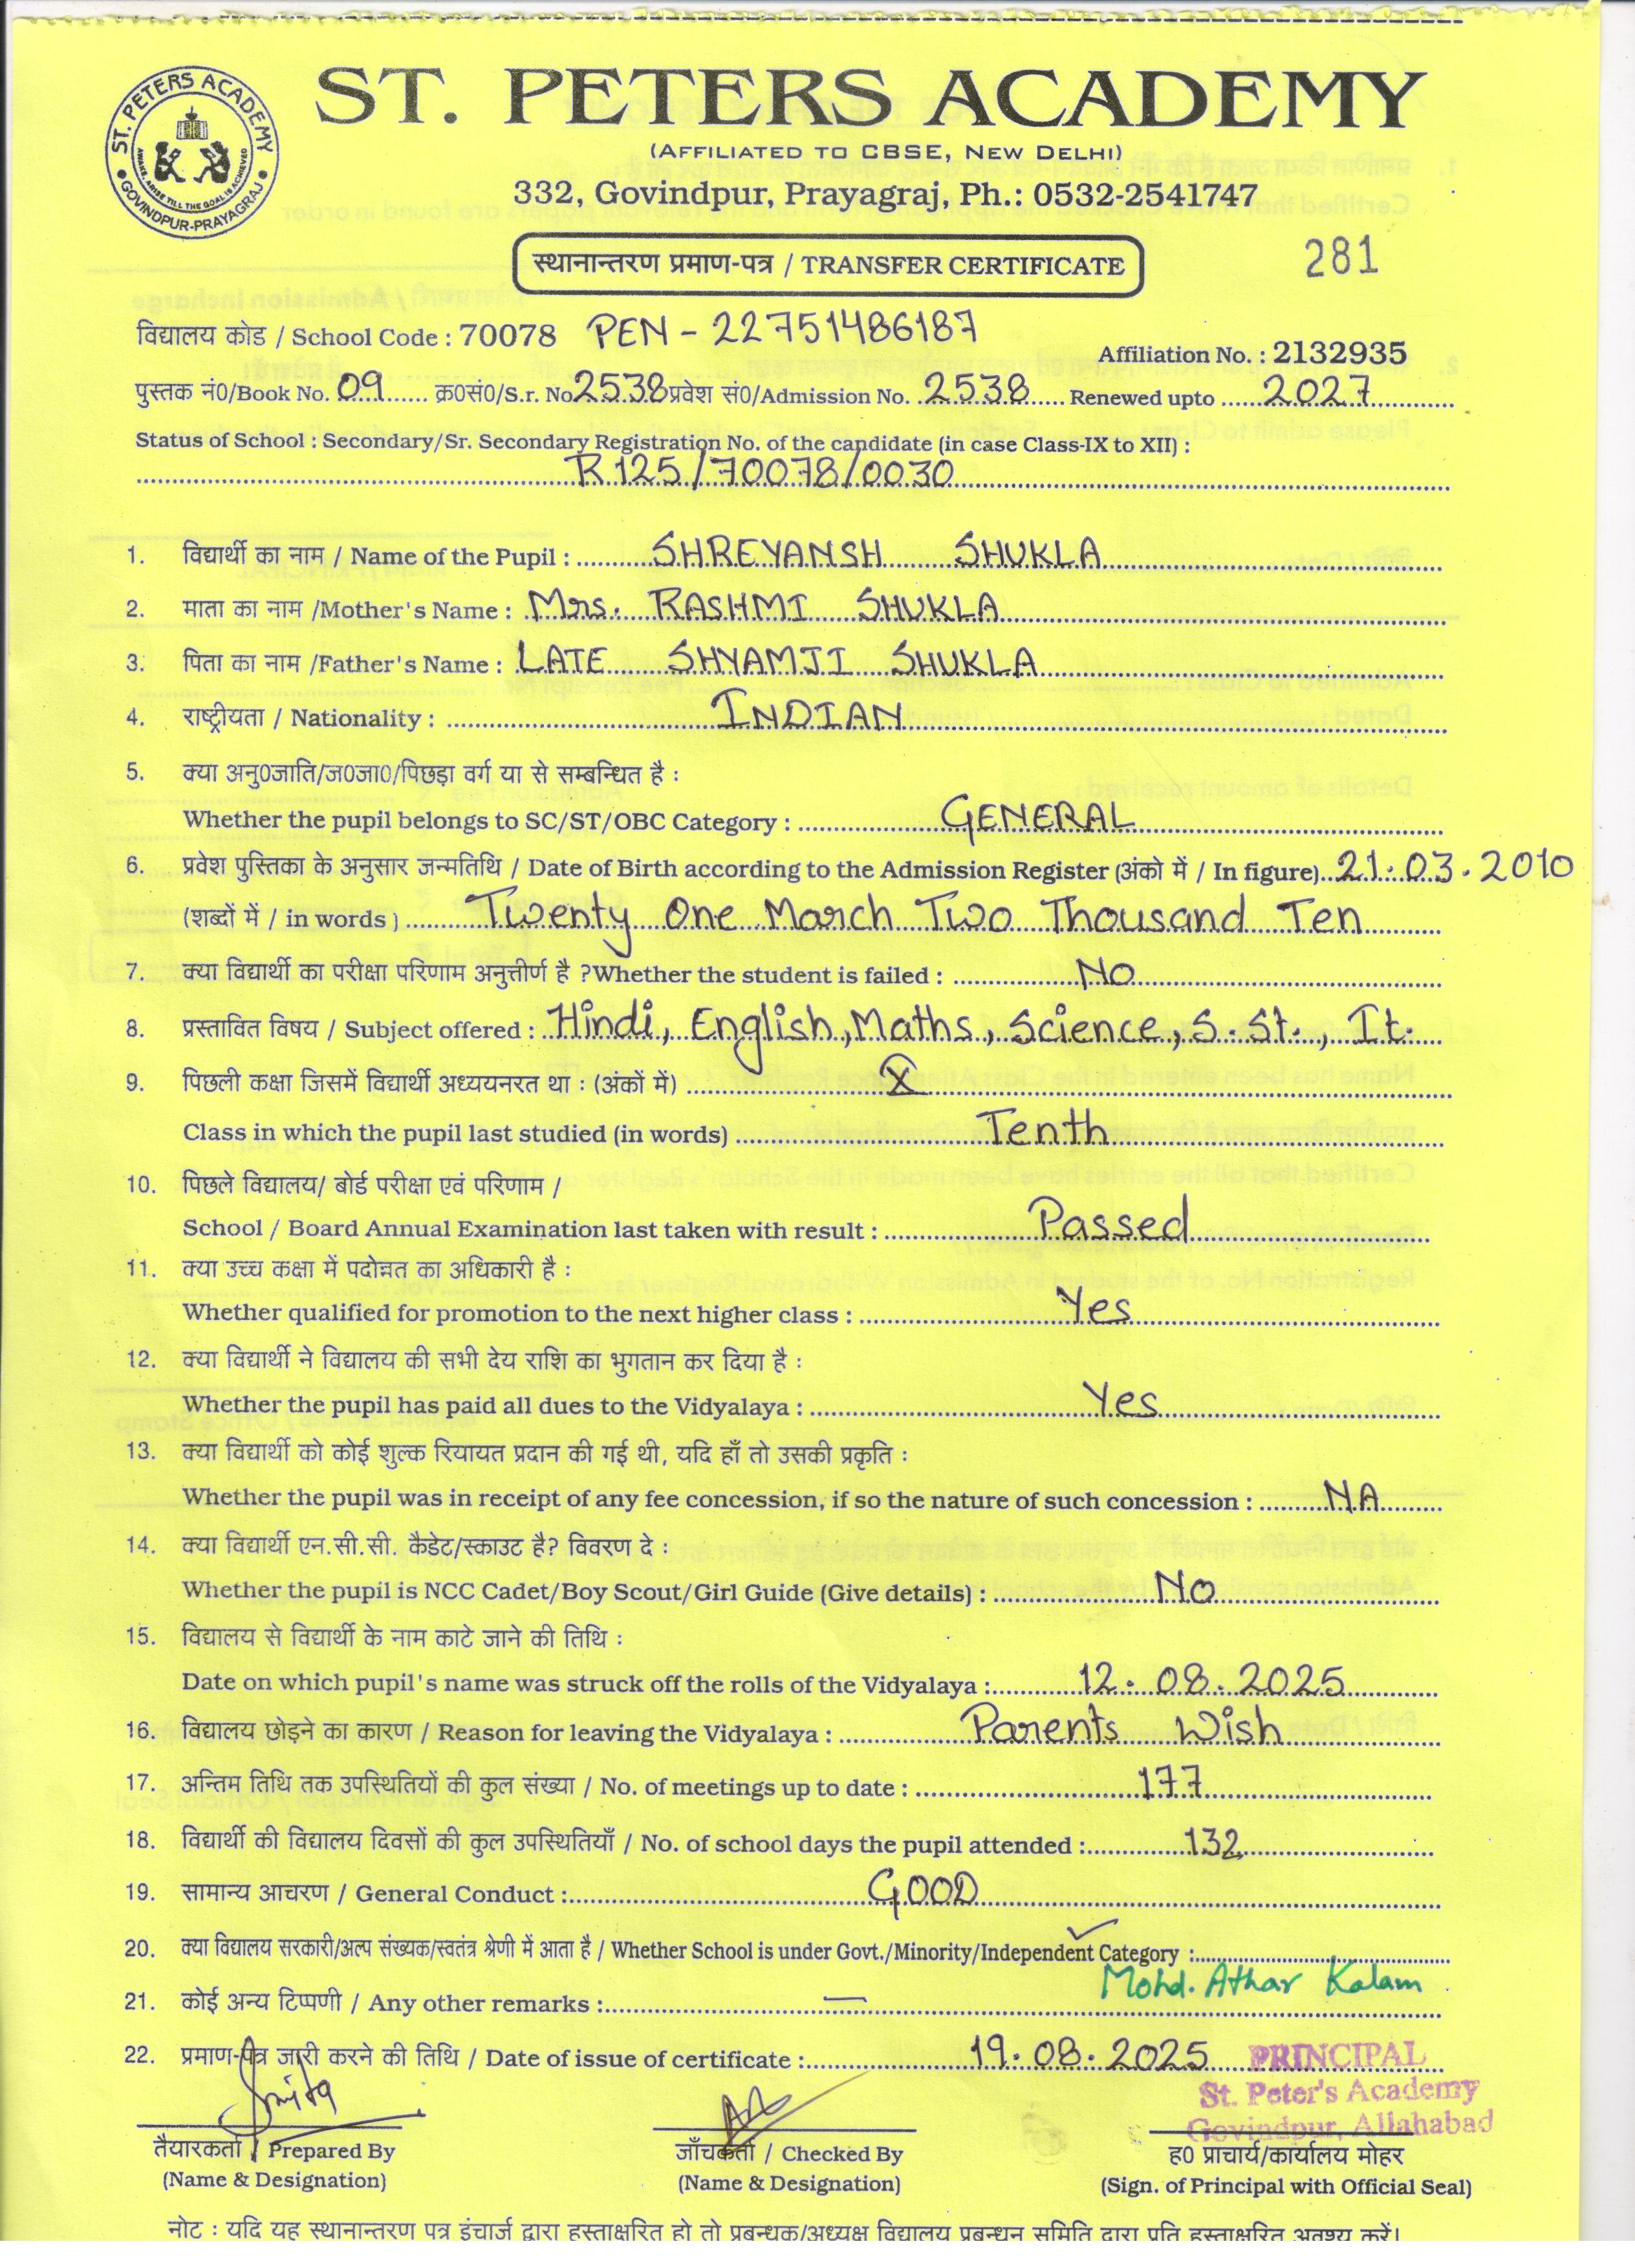 ST. PETERS ACADEMY
AWAKE, ARISE TILL THE GOAL IS ACHIEVED
GOVINDPUR-PRAYAGRAJ
ST. PETERS ACADEMY
(AFFILIATED TO CBSE, NEW DELHI)
332, Govindpur, Prayagraj, Ph.: 0532-2541747
स्थानान्तरण प्रमाण-पत्र / TRANSFER CERTIFICATE
281
विद्यालय कोड / School Code : 70078 PEN - 22751486187
Affiliation No. : 2132935
पुस्तक नं0/Book No. 09 क्र0सं0/S.r. No 2538 प्रवेश सं0/Admission No. 2538 Renewed upto 2027
Status of School : Secondary/Sr. Secondary Registration No. of the candidate (in case Class-IX to XII) :
R125/70078/0030
1. विद्यार्थी का नाम / Name of the Pupil : SHREYANSH SHUKLA
2. माता का नाम /Mother's Name : Mrs. RASHMI SHUKLA
3. पिता का नाम /Father's Name : LATE SHYAMJI SHUKLA
4. राष्ट्रीयता / Nationality : INDIAN
5. क्या अनु0जाति/ज0जा0/पिछड़ा वर्ग या से सम्बन्धित है :
Whether the pupil belongs to SC/ST/OBC Category : GENERAL
6. प्रवेश पुस्तिका के अनुसार जन्मतिथि / Date of Birth according to the Admission Register (अंको में / In figure) 21.03.2010
(शब्दों में / in words ) Twenty One March Two Thousand Ten
7. क्या विद्यार्थी का परीक्षा परिणाम अनुत्तीर्ण है ?Whether the student is failed : NO
8. प्रस्तावित विषय / Subject offered : Hindi, English, Maths, Science, S.St., It.
9. पिछली कक्षा जिसमें विद्यार्थी अध्ययनरत था : (अंकों में) X
Class in which the pupil last studied (in words) Tenth
10. पिछले विद्यालय/ बोर्ड परीक्षा एवं परिणाम /
School / Board Annual Examination last taken with result : Passed
11. क्या उच्च कक्षा में पदोन्नत का अधिकारी है :
Whether qualified for promotion to the next higher class : Yes
12. क्या विद्यार्थी ने विद्यालय की सभी देय राशि का भुगतान कर दिया है :
Whether the pupil has paid all dues to the Vidyalaya : Yes
13. क्या विद्यार्थी को कोई शुल्क रियायत प्रदान की गई थी, यदि हाँ तो उसकी प्रकृति :
Whether the pupil was in receipt of any fee concession, if so the nature of such concession : NA
14. क्या विद्यार्थी एन.सी.सी. कैडेट/स्काउट है? विवरण दे :
Whether the pupil is NCC Cadet/Boy Scout/Girl Guide (Give details) : NO
15. विद्यालय से विद्यार्थी के नाम काटे जाने की तिथि :
Date on which pupil's name was struck off the rolls of the Vidyalaya : 12.08.2025
16. विद्यालय छोड़ने का कारण / Reason for leaving the Vidyalaya : Parents Wish
17. अन्तिम तिथि तक उपस्थितियों की कुल संख्या / No. of meetings up to date : 177
18. विद्यार्थी की विद्यालय दिवसों की कुल उपस्थितियाँ / No. of school days the pupil attended : 132
19. सामान्य आचरण / General Conduct : GOOD
20. क्या विद्यालय सरकारी/अल्प संख्यक/स्वतंत्र श्रेणी में आता है / Whether School is under Govt./Minority/Independent Category :
Mohd. Athar Kalam
21. कोई अन्य टिप्पणी / Any other remarks : —
22. प्रमाण-पत्र जारी करने की तिथि / Date of issue of certificate : 19.08.2025 PRINCIPAL
St. Peter's Academy
Govindpur, Allahabad
Smita
तैयारकर्ता / Prepared By जाँचकर्ता / Checked By ह0 प्राचार्य/कार्यालय मोहर
(Name & Designation) (Name & Designation) (Sign. of Principal with Official Seal)
नोट : यदि यह स्थानान्तरण पत्र इंचार्ज द्वारा हस्ताक्षरित हो तो प्रबन्धक/अध्यक्ष विद्यालय प्रबन्धन समिति द्वारा प्रति हस्ताक्षरित अवश्य करें।